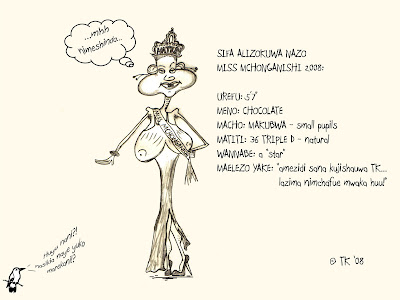 ...mhh
nimeshinda...
SIFA ALIZOKUWA NAZO
MISS MCHONGANISHI 2008:
UREFU: 5'7
MENO: CHOCOLATE
MACHO: MAKUBWA - small pupils
MATITI: 36 TRIPLE D - natural
WANNABE: a "star"
MAELEZO YAKE: "amezidi sana kujishauwa TK...
lazima nimchafue mwaka huu!"
naye yuko
© TK '08